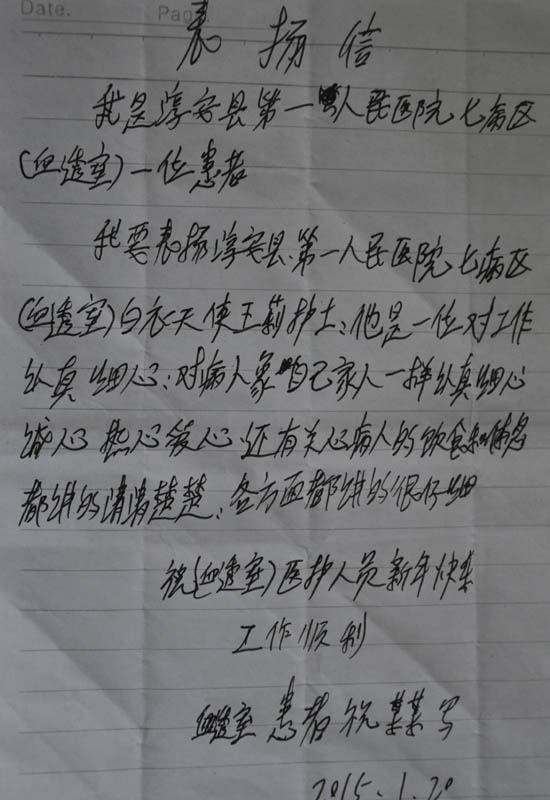 Date.
Page
表扬信
我是淳安县第一人民医院七病区
(血透室)一位患者
我要表扬淳安县第一人民医院七病区
(血透室)白衣天使王莉护士,他是一位对工作
认真细心,对病人象自己家人一样认真细心
诚心热心爱心,还有关心病人的饮食和体务
都讲的清清楚楚,各方面都讲的很仔细
祝(血透室)医护人员新年快乐
工作顺利
血透室患者祝某某写
2015.1.20